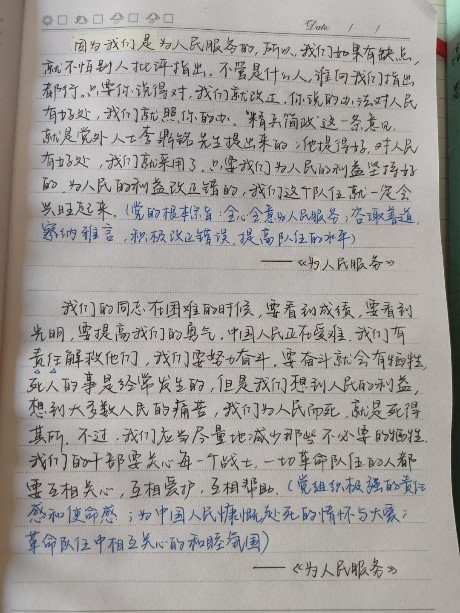 Date: / /
因为我们是为人民服务的,所以,我们如果有缺点,
就不怕别人批评指出。不管是什么人,谁向我们指出
都行。只要你说得对,我们就改正。你说的办法对人民
有好处,我们就照你的办。"精兵简政"这一条意见,
就是党外人士李鼎铭先生提出来的;他提得好,对人民
有好处,我们就采用了。只要我们为人民的利益坚持好
的,为人民的利益改正错的,我们这个队伍就一定会
兴旺起来。(党的根本宗旨:全心全意为人民服务;咨诹善道,
察纳雅言,积极改正错误,提高队伍的水平)
——《为人民服务》
我们的同志在困难的时候,要看到成绩,要看到
光明,要提高我们的勇气。中国人民正在受难,我们有
责任解救他们,我们要努力奋斗。要奋斗就会有牺牲,
死人的事是经常发生的,但是我们想到人民的利益,
想到大多数人民的痛苦,我们为人民而死,就是死得
其所。不过,我们应当尽量地减少那些不必要的牺牲。
我们的干部要关心每一个战士,一切革命队伍的人都
要互相关心,互相爱护,互相帮助。(党组织极强的责任
感和使命感;为中国人民慷慨赴死的情怀与大爱;
革命队伍中相互关心的和睦氛围)
——《为人民服务》